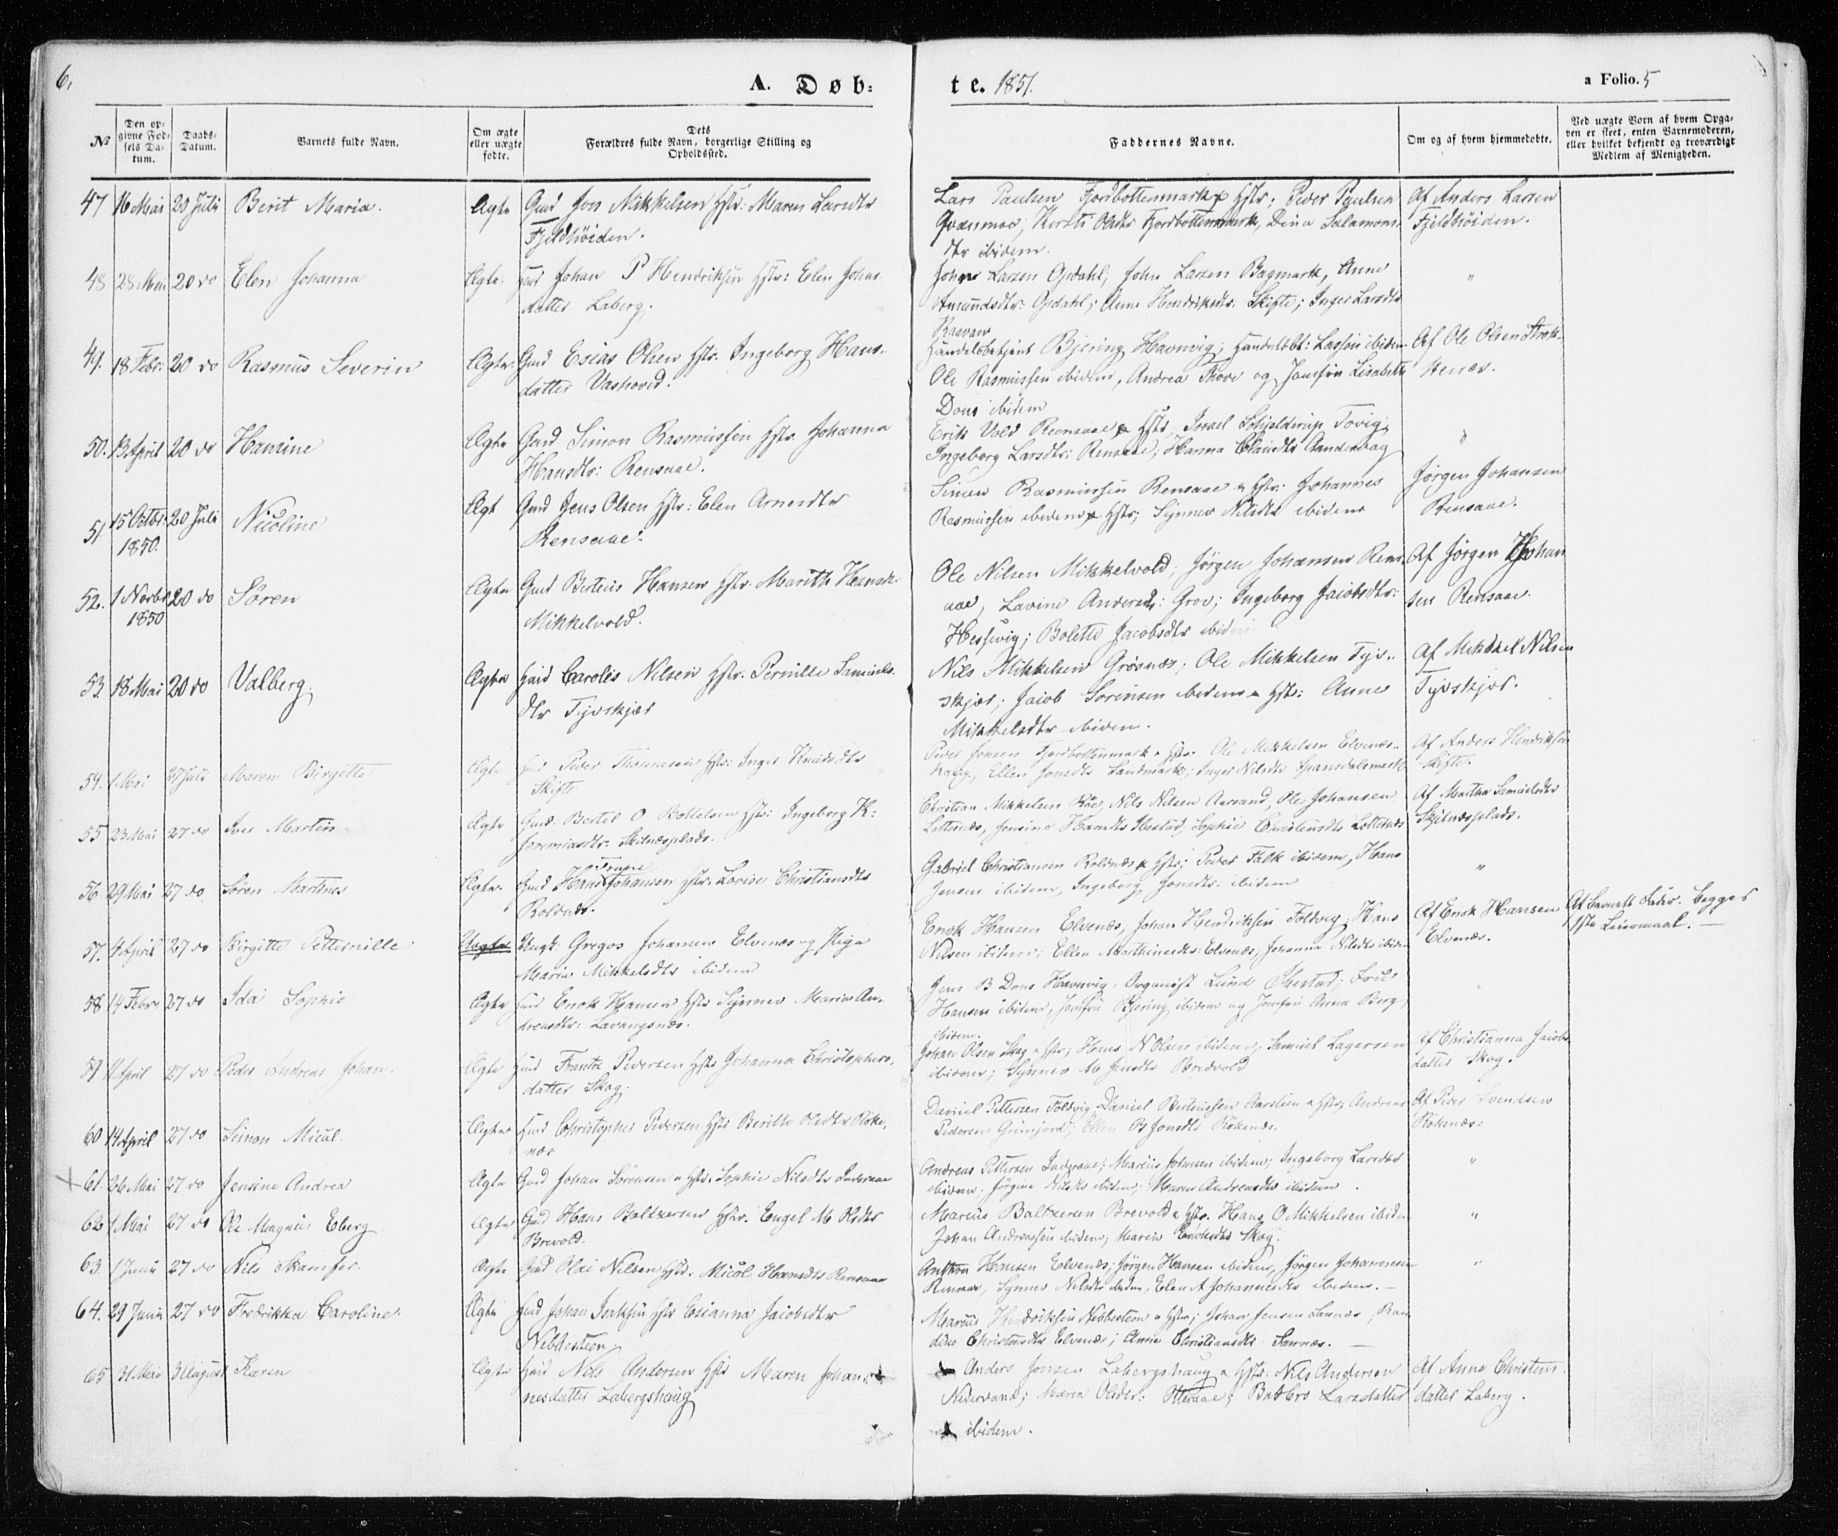 6.
A. Døb-
te. 1851.
a Folio. 5
No
Den op-
givne Fød-
sels Da-
tum.
Daabs-
Datum.
Barnets fulde Navn.
Om ægte
eller uægte
fødte.
Dets
Forældres fulde Navn, borgerlige Stilling og
Opholdssted.
Faddernes Navne.
Om og af hvem hjemmedøbte.
Ved uægte Børn af hvem Opga-
ven er skeet, enten Barnemoderen,
eller hvilket bekjendt og troværdigt
Medlem af Menigheden.
47 16 Mai 20 Juli Berit Maria. Ægte Gmd Jon Mikkelsen Hstr: Maren Larsdtr
Fjeldhøiden.
Lars Paulsen Fjordbottenmark Hstr; Peder Paulsen
Kersti Olsdtr Fjordbottenmark, Dina Salamons-
dtr ibidem.
Af Anders Larsen
Fjeldhøiden.
48 28 Mai 20 do Elen Johanna Ægte. Johan P Hendriksen Hstr: Elen Johns
datter Laberg.
John Larsen Gjedahl; John Larsen Bagmark, Anne
Amundsdtr: Anne Hendriksdtr. Skifte; Inger Larsdtr
"
49. 18 Febr. 20 do Rasmus Severin Ægte. Gmd Esias Olsen Hstr. Ingeborg Hans-
datter Vashoved.
Handelsbetjent Bjering Havnvig; Handelsbt: Lassen ibidem
Ole Rasmussen ibidem, Andrea og Jomfru Lisabeth
Dons ibidem
Af Ole Olsen
50. 13 April 20 do Hansine Ægte Gmd Simon Rasmussen Hstr. Johanna
Hansdtr: Rensaae.
Erik Vold Rensaae Hstr, Israel Schjelderup Tovig;
Ingeborg Larsdtr: Rensaae; Hanna
"
51 15 Octbr. 1850. 20 Juli Nicoline Ægt Gmd Jens Olsen Hstr: Elen Arnesdtr
Rensaae.
Simon Rasmussen Rensaae Hstr: Johannes
Rasmussen ibidem Hstr; Synnev Nilsdtr ibidem
Jørgen Johansen
Rensaae.
52. 1 Novbr 1850 20 do Søren Ægte Gmd Berteus Hansen Hstr. Marith Hansdr
Mikkelvold.
Ole Nilsen Mikkelvold; Jørgen Johansen Rens-
aae, Lavine Andersdtr: Grov; Ingeborg Jacobsdtr:
Hessevig; Bolette Jacobsdtr ibidem
Af Jørgen Johan
sen Rensaae.
53. 18 Mai 20 do Valberg. Ægte Carolus Nilsen Hstr. Pernille Samuels-
dtr Tyvskjær
Nils Mikkelsen Grøsnæs; Ole Mikkelsen Tyv-
skjær; Jacob Sørensen ibidem Hstr: Anne
Mikkelsdtr ibidem.
Af Mikkel Nilsen
Tyvskjær.
54. 1 Mai 27 Juli Maren Birgitte Ægte Peder Thomasen Hstr: Inger Knudsdtr
Skifte
Peder Jonsen Fjordbottenmark Hstr. Ole Mikkelsen Elvenæs-
haug, Ellen Jonsdtr Sandmark; Inger Nilsdtr Spansdalsmark
Af Anders Hendriksen
Skifte.
55 23 Mai 27 do Iver Martin Ægte Gmd. Bertel O Bottelsen Hstr: Ingeborg K-
Jeremiasdtr. Skilnæsplads.
Christian Mikkelsen Nils Nilsen Aarsand, Ole Johansen
Lottenæs, Jensine Ibestad, Sophie Christensdtr Lottenæs
Af Martha Samuelsdtr
Skjelnæsplads.
56. 29 Mai 27 do Søren Martines Ægte. Gmd Hans Johansen Hstr. Lovise Christiansdtr
Roldnæs.
Gabriel Christiansen Roldnæs Hstr; Peder Falk ibidem, Hans
Jensen ibidem, Ingeborg Jonsdtr. ibidem
"
57. 4 April 27 do Birgitte Petternille Uægte Ungk. Gregos Johansen Elvenæs og Pige
Maria Mikkelsdtr ibidem
Enok Hansen Elvenæs, Johan Hendriksen Foldvig, Hans
Nilsen ibidem; Ellen Elvenæs, Johanna Nilsdtr ibidem
Af Enok Hansen
Elvenæs.
Af Barnets Fader. Begges
1ste Leiermaal.
58 14 Febr 27 do Ida Sophie Ægte Enok Hansen Hstr Synnev Maria An-
dreasdtr. Lavangsnæs.
Jens B Dons Havnvig, Organist Lund Ibestad;
Hansen ibidem, Jomfru Bjering ibidem og Jomfru Anna Berg,
ibidem.
59 11 April 27 do Peder Andreas Johan. Ægte Frantz Pedersen Hstr Johanna Christophers-
datter Skog.
Johan Olsen Skog Hstr; Hans N Olsen ibidem; Samuel Lagersen
ibidem; Synnev M Jensdtr Bredvold
Af Christianna Jacobs
datter Skog.
60 14 April 27 do Simon Micul. Ægte Christopher Pedersen Hstr Berithe Olsdtr Røke-
næs
Daniel Pettersen Foldvig, Daniel Berteussen Hstr; Andreas
Pedersen Grimsjord; Ellen B Jonsdtr Røkenæs.
Af Peder Svendsen
Røkenæs.
× 61. 26 Mai 27 do Jensine Andrea Ægte Gmd Johan Sørensen Hstr. Sophie Nilsdtr Inderaae
Andreas Pettersen Inderaae; Marcus Johnsen ibidem; Ingeborg Larsdtr
ibidem. Jørgine Nilsdtr ibidem; Maren Andreasdtr ibidem.
"
62 1 Mai 27 do Ole Magnus Eberg. Ægte Gmd Hans Baltzersen Hstr. Engel M Olsdtr
Brevold.
Marcus Baltzersen Brevold Hstr. Hans O Mikkelsen ibidem
Johan Andreassen ibidem; Maren Enoksdtr Skog.
"
63 1 Juni 27 do Nils Skamfer. Ægte Gmd Olai Nilsen Hstr. Micol Hansdtr Rensaae
Anthon Hansen Elvenæs; Jørgen Hansen ibidem, Jørgen Johannesen
Rensaae, Synnev Nilsdtr ibidem, Elen A Johannesdtr ibidem.
"
64. 29 Juni 27 do Fredrikka Caroline. Ægte Gmd Johan Isaksen Hstr Esianna Jacobsdtr
Nibbesteen
Marcus Hendriksen Nibbesteen Hstr; Johan Jensen Sannæs,
Christensdtr Elvenæs; Anne Christiansdtr Sannæs.
65 31 Mai 3 August Karen Ægte Nils Andersen Hstr Maren Johan-
nesdatter Labergshaug
Anders Jonsen Labergshaug Hstr. Nils Andersen
Nedervand; Maren Olsdtr: Otteraae; Barbro Larsdatter
ibidem.
Af Anne Christens
datter Laberg.